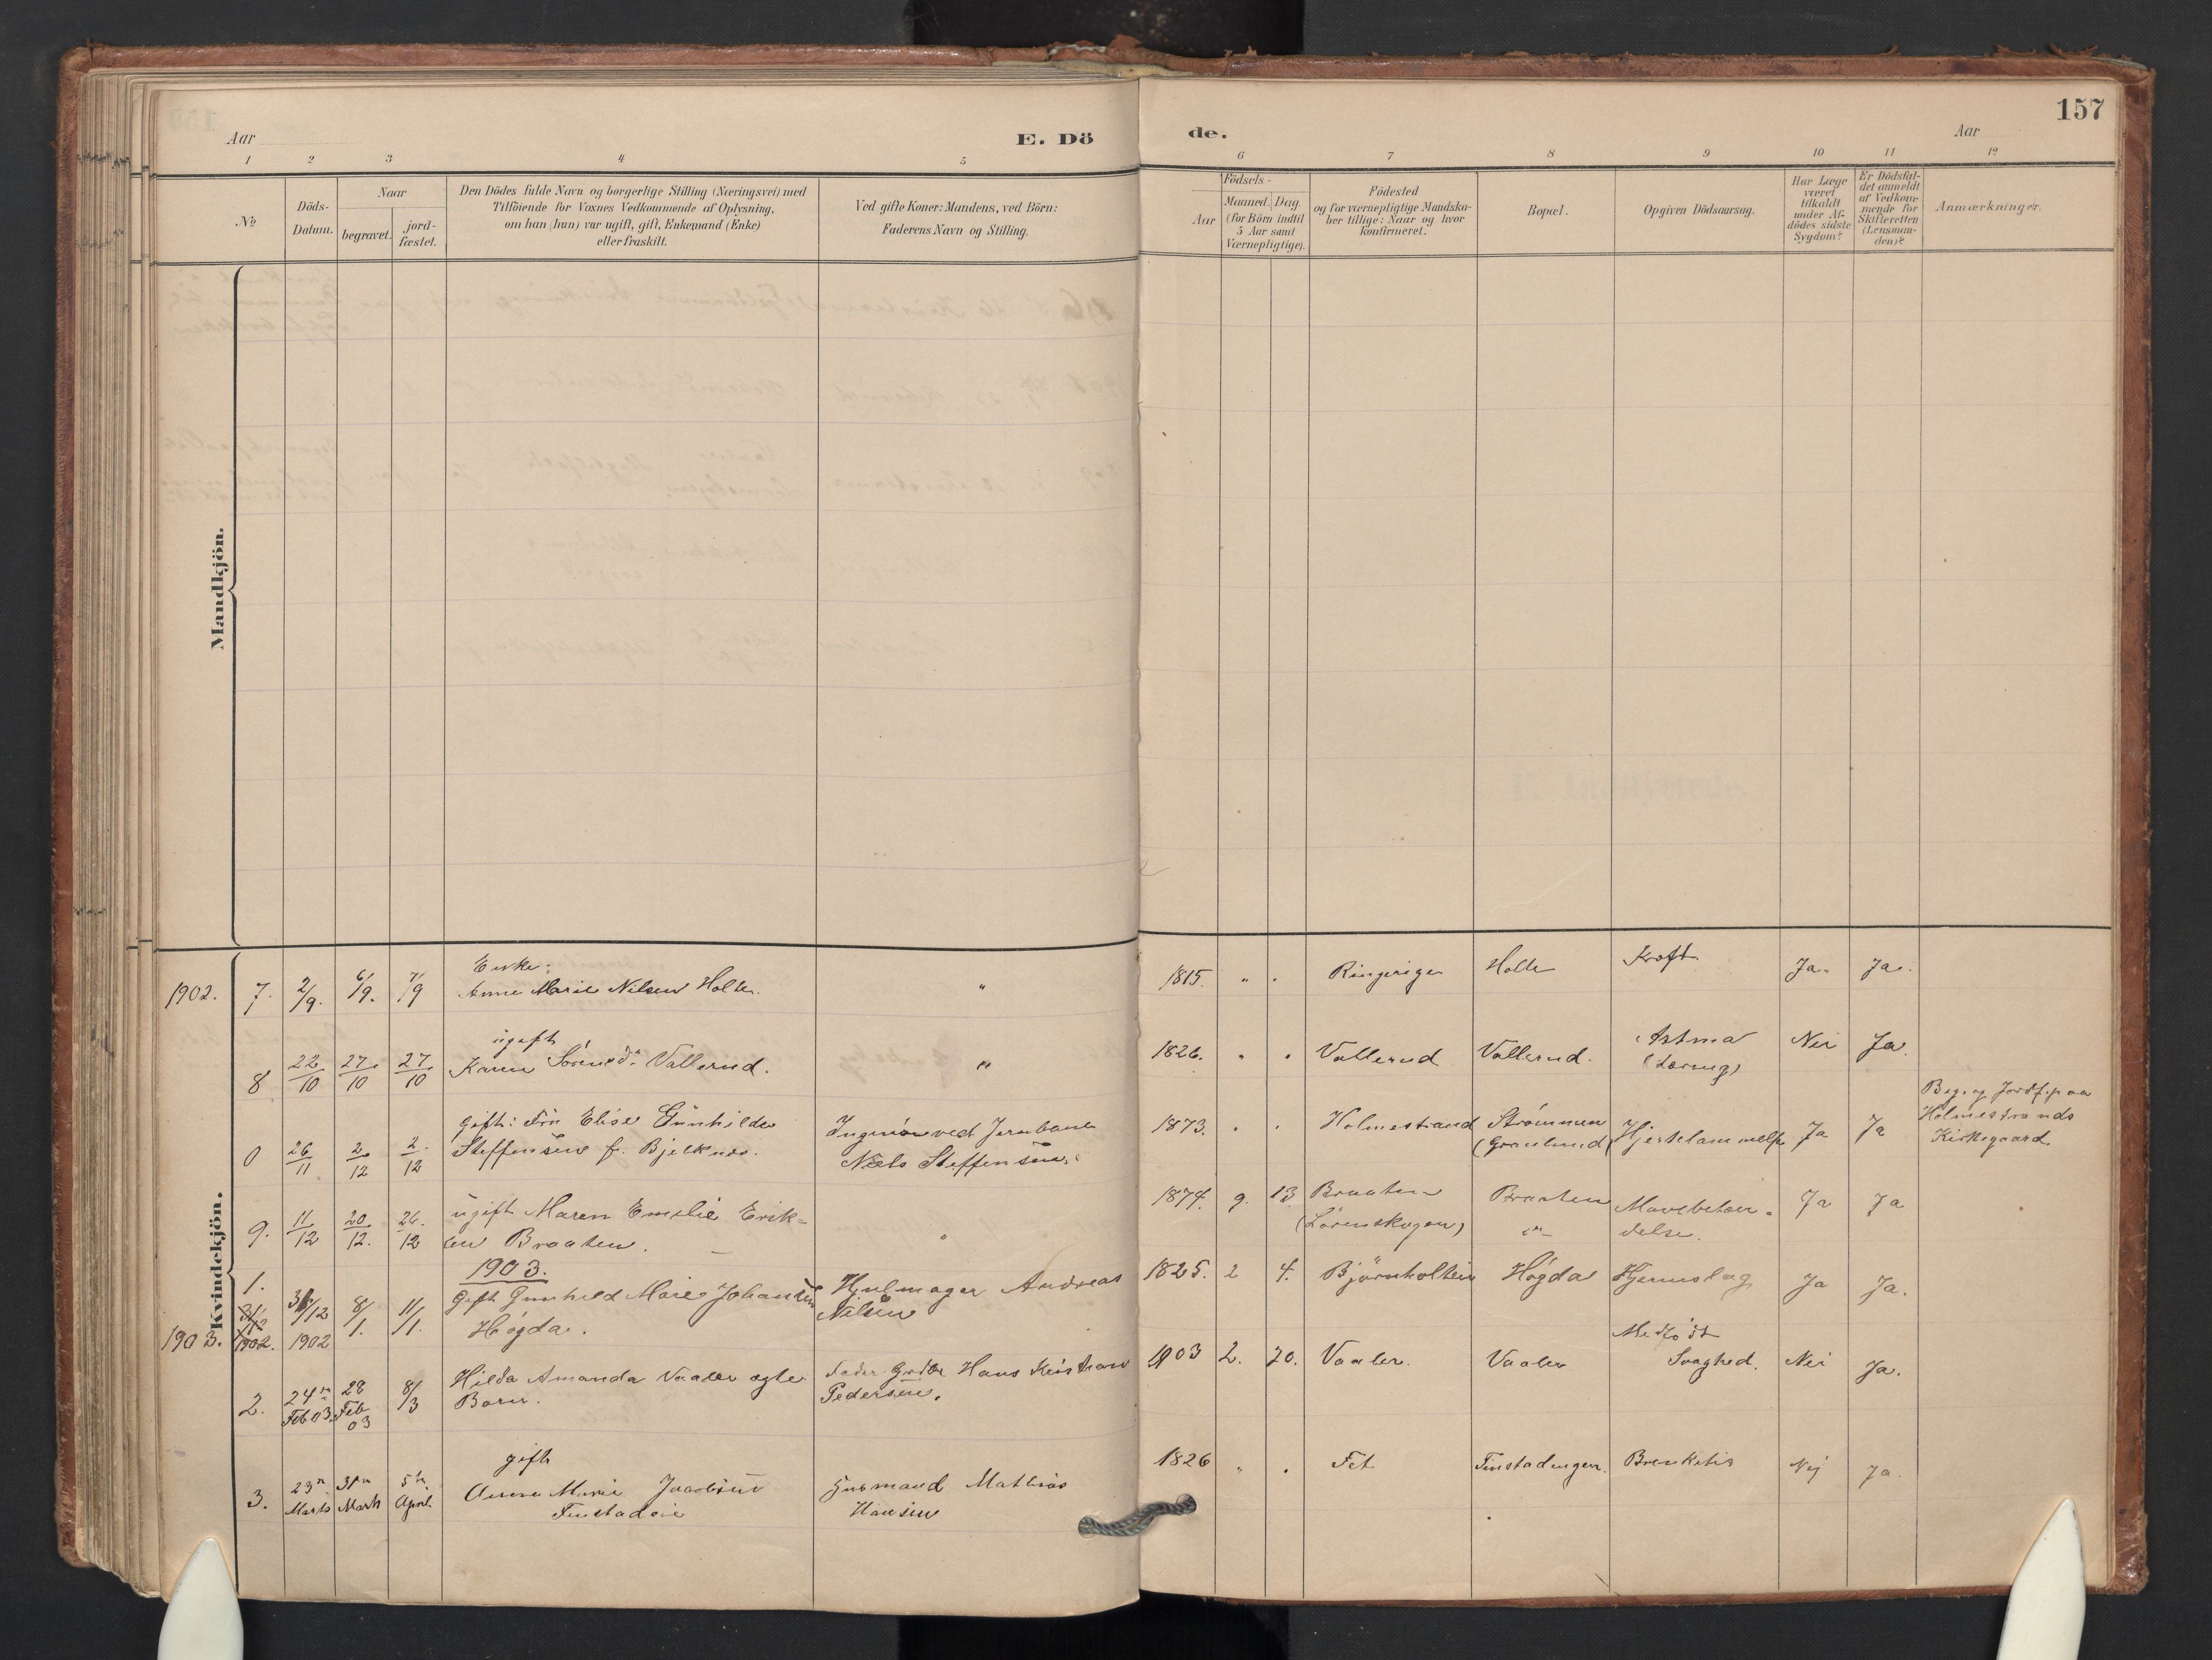 157
Aar
E. Dö
de.
Aar
1 2 3 4 5 6 7 8 9 10 11 12
№
Döds-
Datum.
Naar
begravet.
jord-
fæstet.
Den Dödes fulde Navn og borgerlige Stilling (Næringsvei) med
Tilföiende for Voxnes Vedkommende af Oplysning,
om han (hun) var ugift, gift, Enkemand (Enke)
eller fraskilt.
Ved gifte Koner: Mandens, ved Börn:
Faderens Navn og Stilling.
Födsels-
Aar
Maaned. Dag.
(for Börn indtil
5 Aar samt
Værnepligtige).
Födested
og for værnepligtige Mandska-
ber tillige: Naar og hvor
konfirmeret.
Bopæl.
Opgiven Dödsaarsag.
Har Læge
været
tilkaldt
under Af-
dödes sidste
Sygdom?
Er Dödsfal-
det anmeldt
af Vedkom-
mende for
Skifteretten
(Lensman-
den)?
Anmærkninger.
Mandkjön.
Kvindekjön.
Enke:
1902. 7. 2/9. 6/9. 7/9 Anne Marie Nilsen Holte. " 1815. " . Ringerige Holte Kræft Ja. Ja.
ugift
8 22/10 27/10 27/10 Karen Sörensd. Vallerud. " 1826. " " Vallerud Vallerud. Astma Nei Ja.
0 26/11 2/12 2/12 gift: Fru Elise Gunhilda
Steffensen f. Bjelknes.
Ingeniør ved Jernbane
Niels Steffensen.
1873. " " Holmestrand Strømmen
(Granlund)
Hjerte Ja Ja
Beg. og Jordf. paa
Holmestrands
Kirkegaard
9. 11/12 20/12. 26/12 ugift Maren Emilie Erik-
sen Braaten. "
1874. 9. 13 Braaten
(Lörenskogen)
Braaten
Mavebetæn-
delse.
Ja Ja
1903.
1. 31/12 1902 8/1. 11/1. Gift Gunhild Marie Johansen
Högda.
Hjulmager Andreas
Nilsen
1825. 2 4. Björnholteie Högda Hjerneslag Ja Ja.
1903. 31/12 1902.
2. 24n Feb 03. 28 Feb 03 8/3 Hilda Amanda Vaaler ægte
Barn.
Fader Grdbr Hans Kristian
Pedersen.
1903 2. 20. Vaaler. Vaaler Medfödt
Svaghed. Nei Ja.
gift
3. 23n Marts 31n Marts 5n April. Anna Marie Jacobsen
Finstadeie
Husmand Mathias
Hansen
1826 " . Fet Finstadengen. Bronkitis Nej Ja.